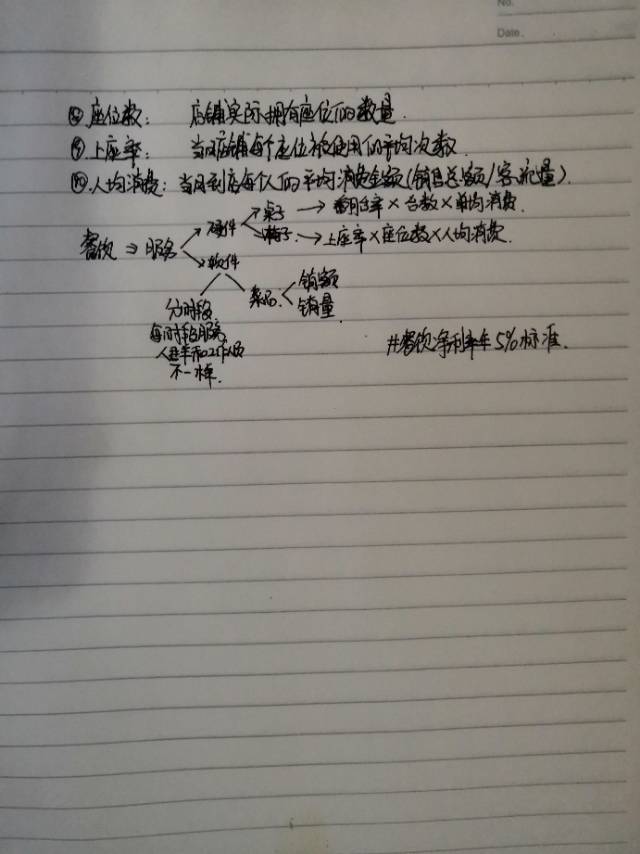 No.
Date.
座位数： 店铺实际拥有座位的数量.
上座率： 当日店铺每个座位被使用的平均次数.
人均消费：当日到店每人的平均消费金额(销售总额/客流量).
桌子 → 翻台率×台数×单均消费.
硬件
餐饮 ⇒ 服务
椅子 → 上座率×座位数×人均消费.
软件
销额
分时段 菜品
销量
每个时段服务
人进率和工作人员
不一样.
#餐饮净利率在5%标准.